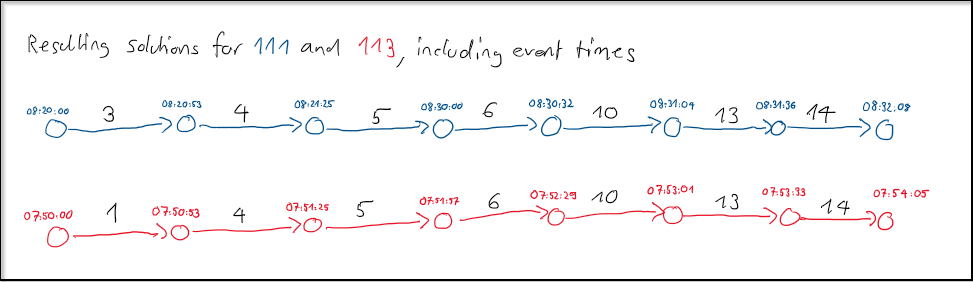 Resulting solutions for 111 and 113, including event times
08:20:00 3 08:20:53 4 08:21:25 5 08:30:00 6 08:30:32 10 08:31:04 13 08:31:36 14 08:32:08
07:50:00 1 07:50:53 4 07:51:25 5 07:51:57 6 07:52:29 10 07:53:01 13 07:53:33 14 07:54:05